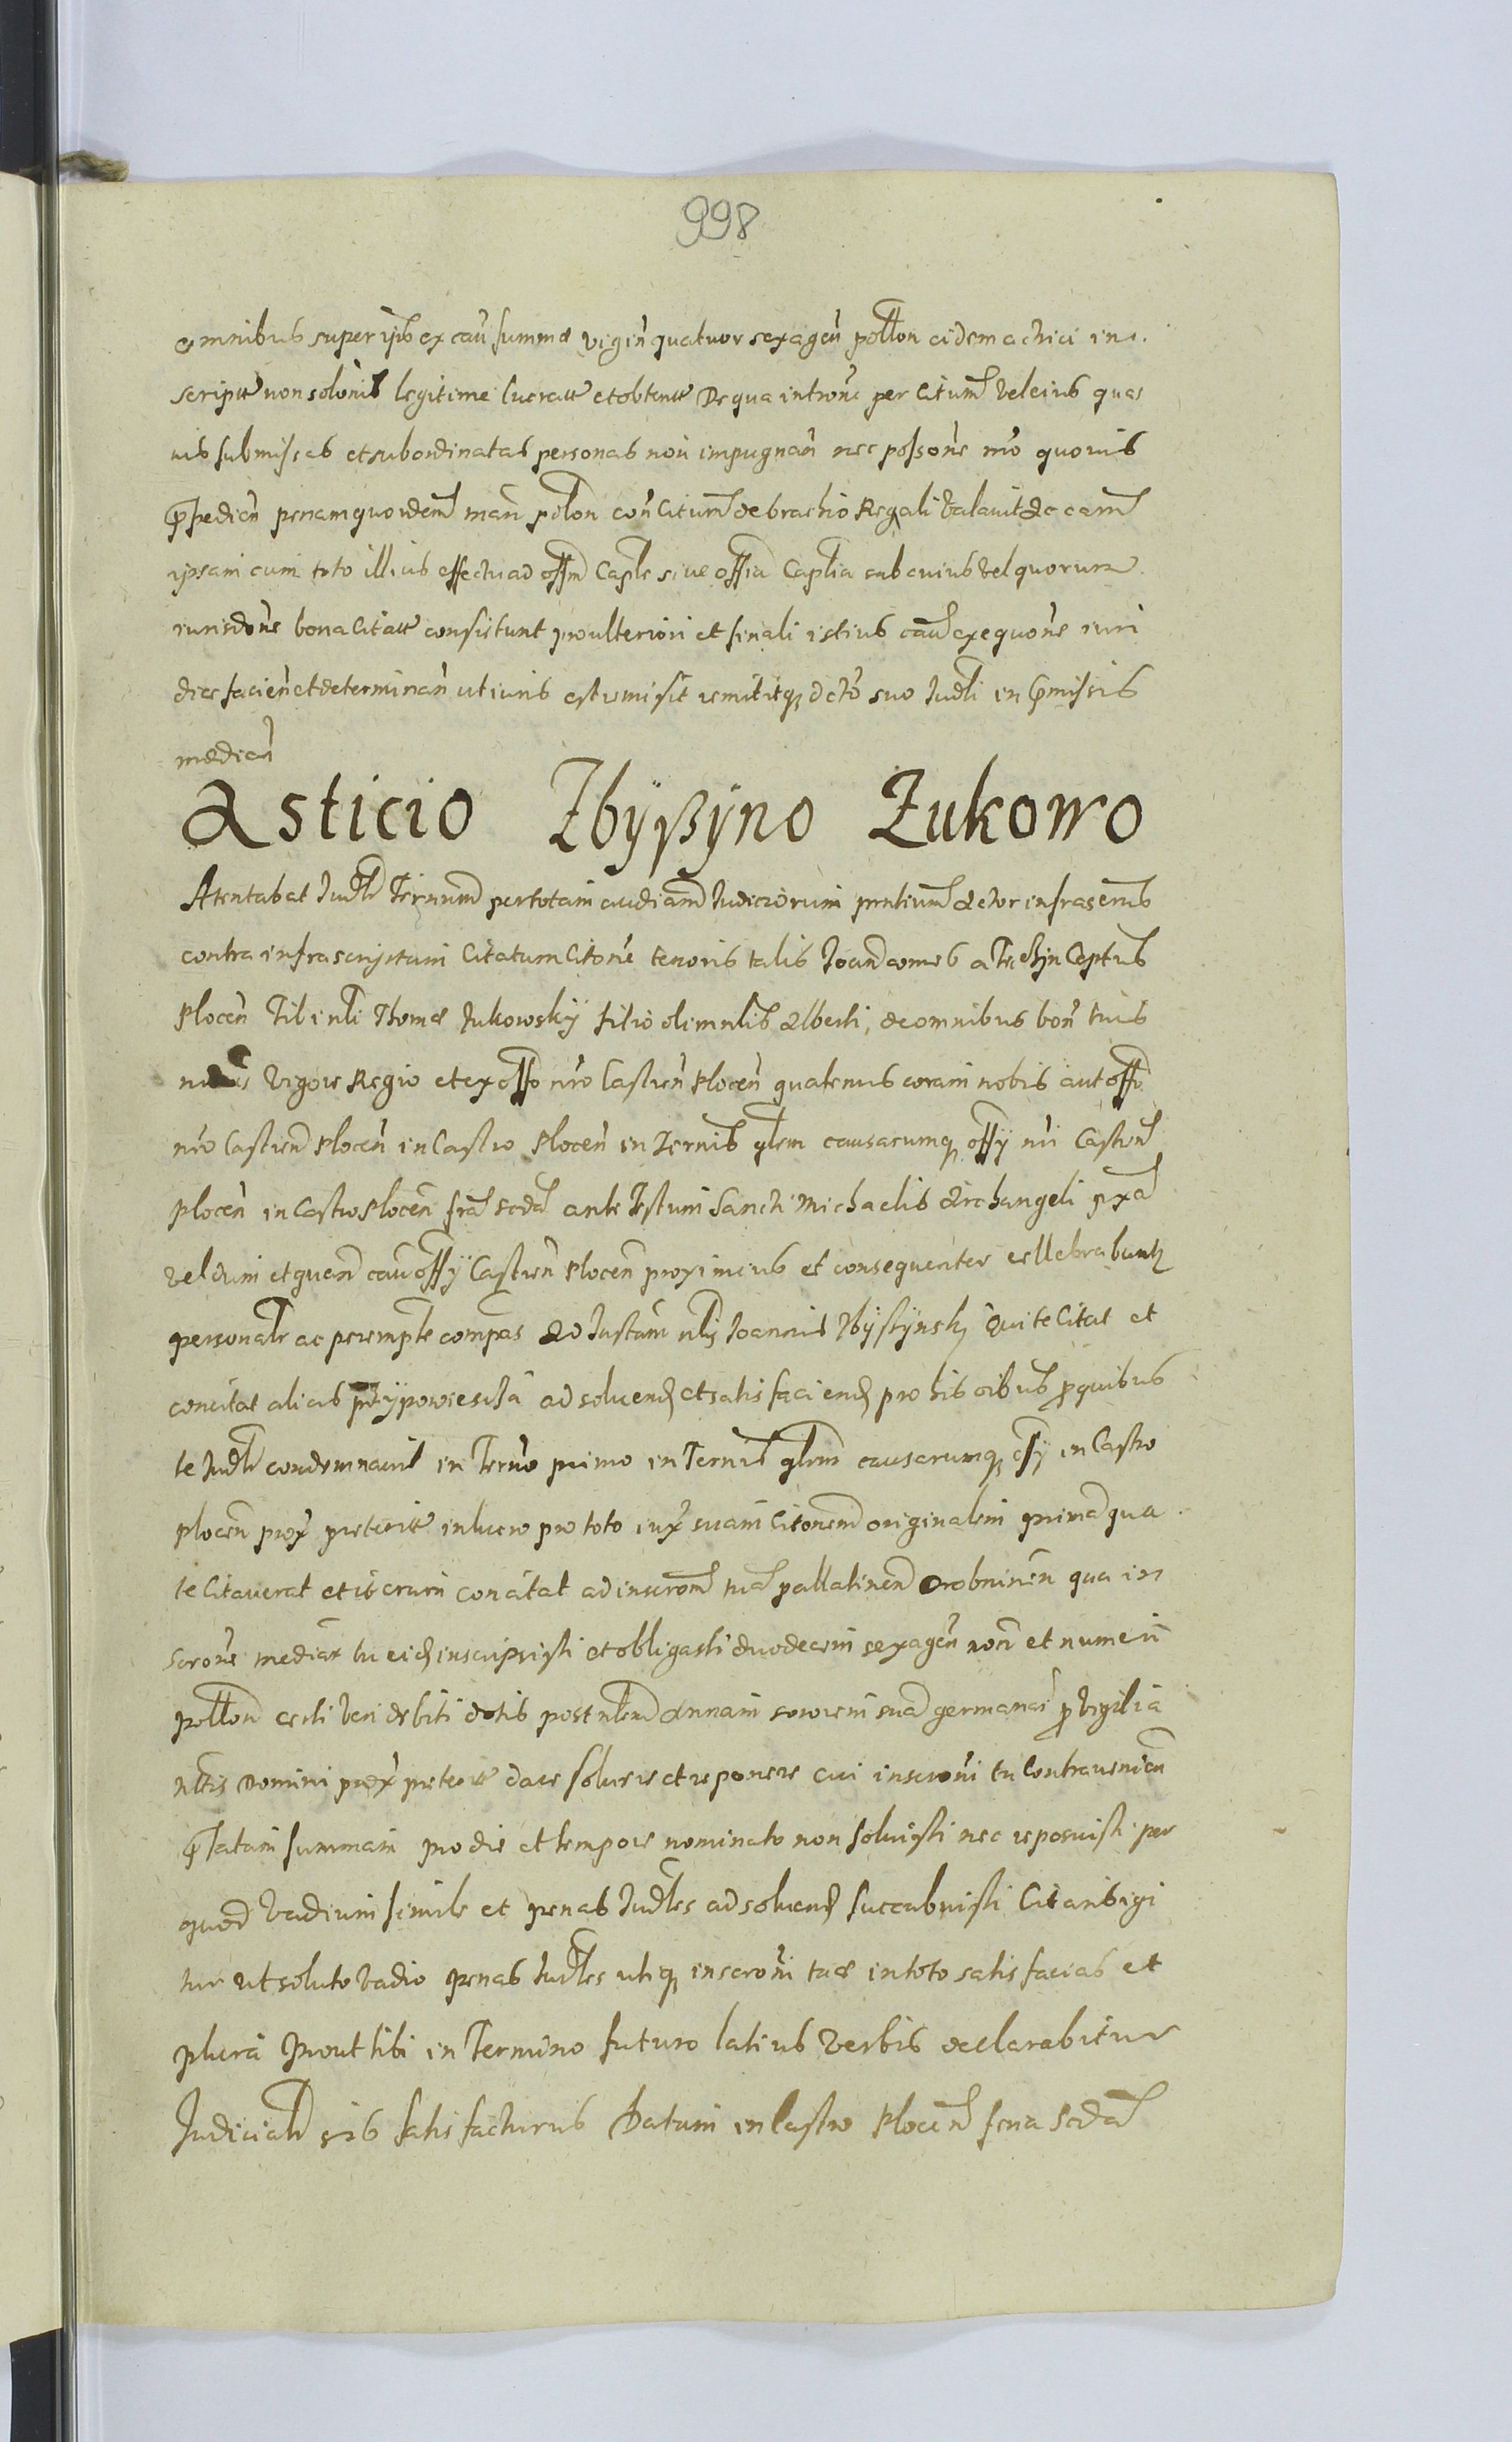 998
omnibus super ipsis ex caũ summæ vigiñ quatuor sexageñ polłon eidem actrici in
scriptt non solũis legitime lucratt et obtentt De qua introñe per Citum vel eius quas
uis submissas et subordinatas personas non impugnañ nec posoñe mõ quouis
p̃pediẽn penam quoudem mań polon coñ Citum de brachio Regali valauit Ac eam
ipsam cum toto illius effectu ad offm Caplē siue offia Caplia sub cuius vel quorum
iurisdoñe bona Citatt consistunt pro ulteriori et finali istius cau exequoñe iuri
dice facieñ et determinañ ut iuris est remisit remititq dcto suo Judłi in p̃missis
mediañ
Asticio Zbÿßÿno Zukowo
Atentabat Judłr Termm per totam audiam Judiciorum pntium Actor infrascrius
contra infrascriptum Citatum Citoñe tenoris talis Joannes comes a Teczÿn Capts
Ploceñ Tibi nłi Thomæ Zukowskÿ filio olim nłis Alberti, de omnibus boñ tuis
mãdo vigore Regio et ex offo nrõ Castreñ Ploceñ quatenus coram nobis aut offo
nrõ Castreñ Ploceñ in Castro Ploceñ in Ternis głem causarumq offÿ nri Castreñ
Ploceñ in Castro Ploceñ fra scda ante festum Sancti Michaelis Archangeli pxa
vel dum et quañ caũ offÿ Castreñ Ploceñ proximius et consequenter cellebrabuntz
personałr ac peremptē compas Ad Instam nłis Joannis Zbÿßÿnsky Qui te Citat et
concitat alias przÿpowiescia ad soluend et satisfaciend pro his oibus p quibus
te Judłr condemnauit in Terno primo in Ternis głem causarumq offÿ in Castro
Ploceñ prox preteritt in lucro pro toto iux suam Citonem originalem prima qua
te Citauerat et iterum concitat ad inscrom tuã pallatinem Drobninen qua in
scroñe median tu eid inscripsisti et obligasti duodecim sexageñ moñ et numeri
Polłon certi veri debiti dotis post nłem Annam sororem suã germanã p Vigilia
Nłtis Domini prox preteritt dare soluere et reponere cui inscroñi tu contraueniẽn
p̃fatam summam pro die et tempore nominato non soluisti nec reposuisti per
quod vadium simile et penas Judłes ad soluend succubuisti Citaris igi
tur ut soluto vadio penas Judłes utiq inscroñi tuæ in toto satisfacias et
plura prout tibi in Termino futuro latius verbis declarabitur
Judicialr sis satisfacturus Datum in Castro Ploceñ feria Scda